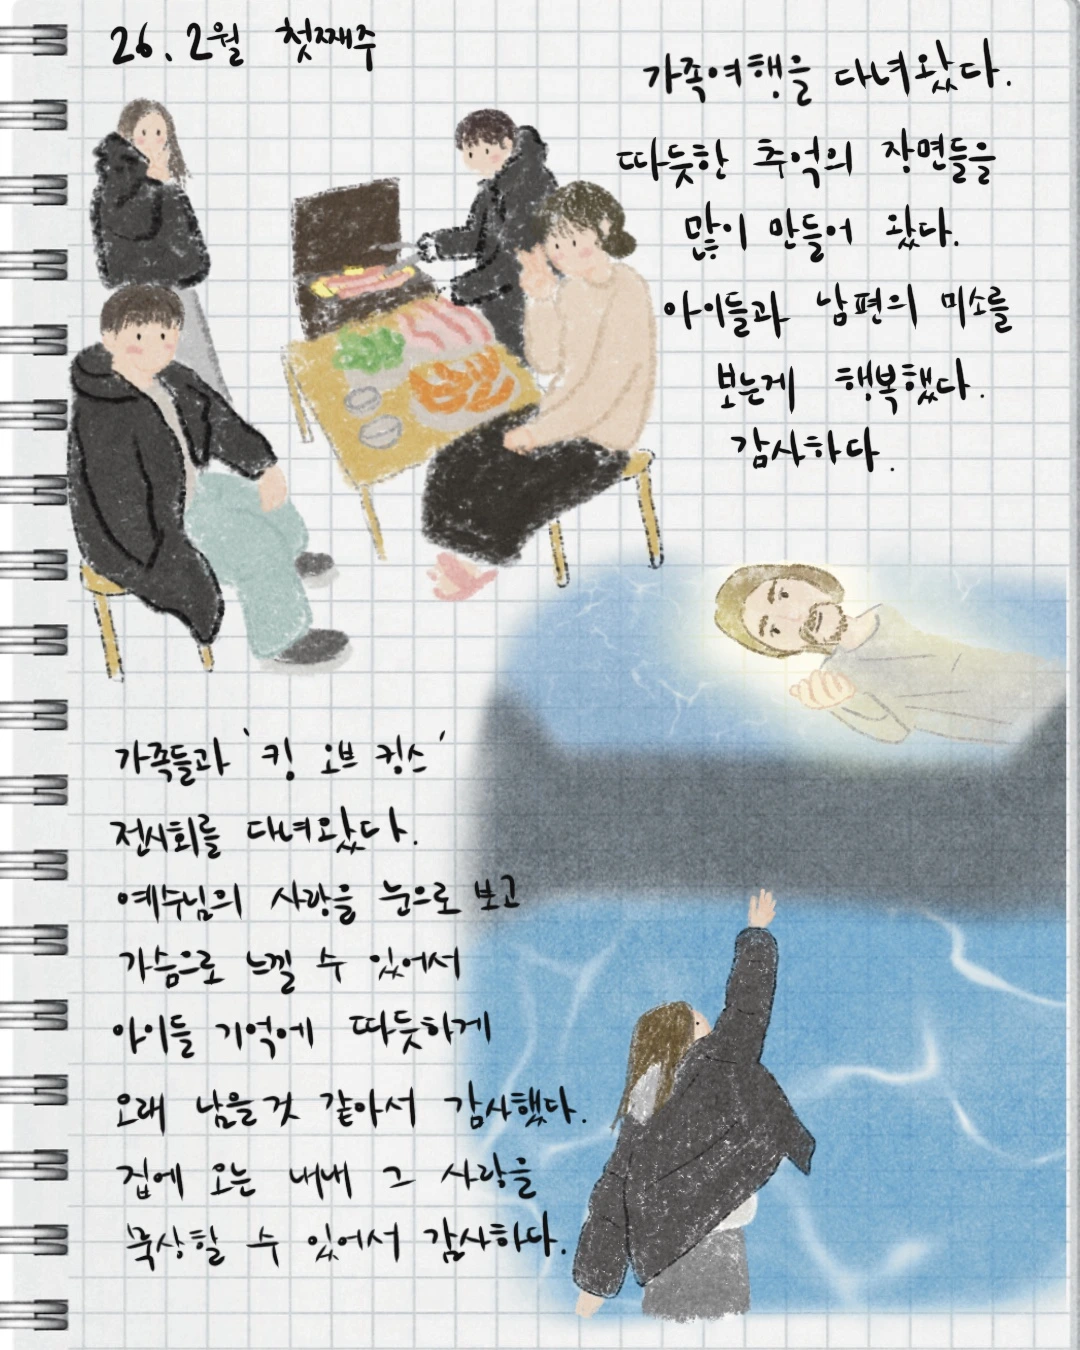 26. 2월 첫째주
가족여행을 다녀왔다.
따듯한 추억의 장면들을
많이 만들어 왔다.
아이들과 남편의 미소를
보는게 행복했다.
감사하다.
가족들과 '킹 오브 킹스'
전시회를 다녀왔다.
예수님의 사랑을 눈으로 보고
가슴으로 느낄 수 있어서
아이들 기억에 따듯하게
오래 남을것 같아서 감사했다.
집에 오는 내내 그 사랑을
묵상할 수 있어서 감사하다.